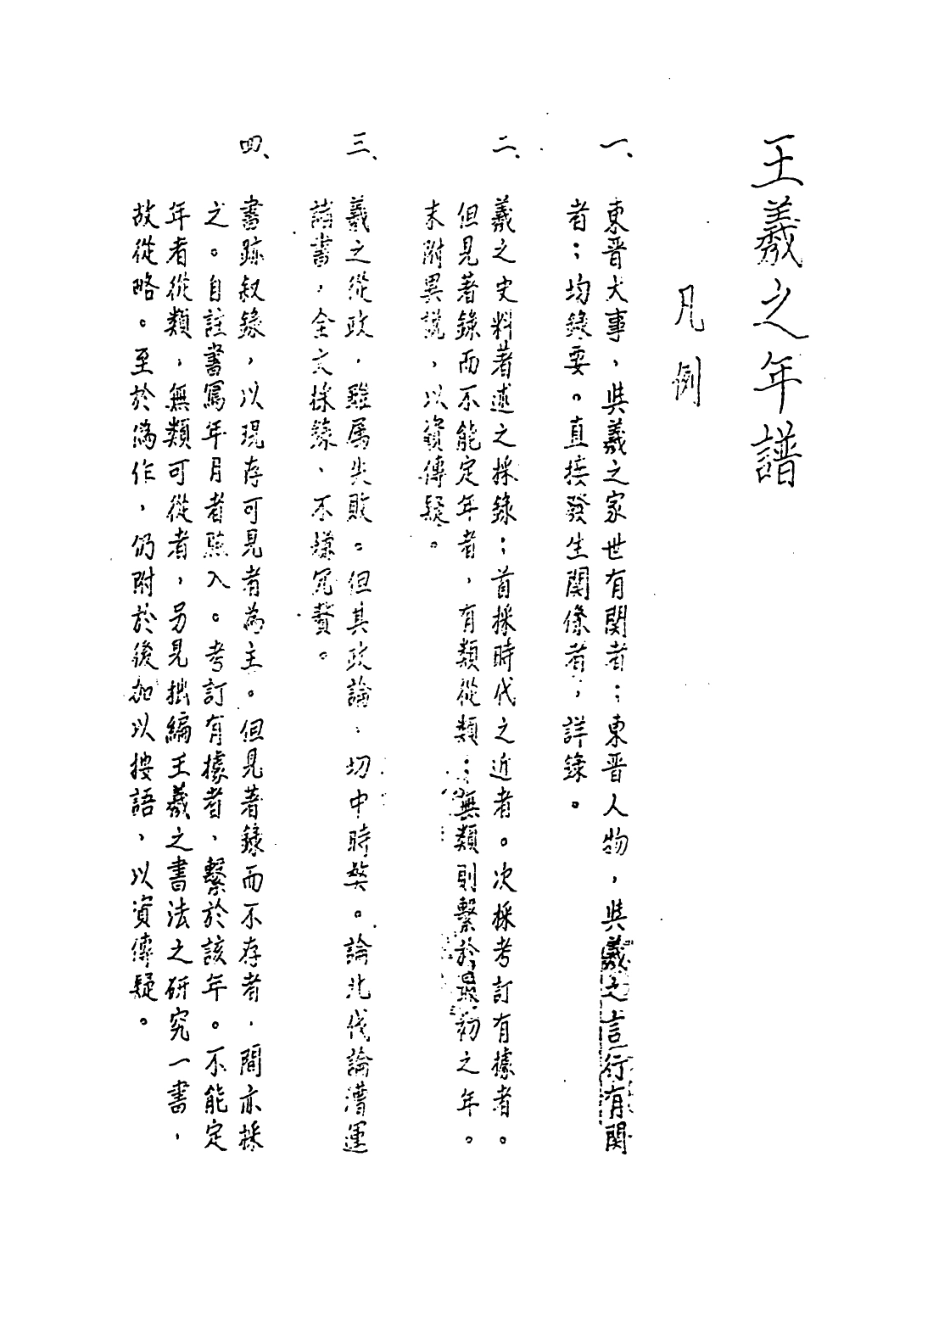 王羲之年譜
凡例
一、東晉大事，與羲之家世有関者；東晉人物，與羲之言行有関
者；均錄要。直接發生関係者，詳錄。
二、羲之史料著述之採錄；首採時代之近者。次採考訂有據者。
但見著錄而不能定年者，有類從類；無類則繫於最初之年。
末附異說，以資傳疑。
三、羲之從政，雖属失敗。但其政論，切中時獘。論北伐論漕運
諸書，全文採錄、不嫌冗贅。
四、書跡叙錄，以現存可見者為主。但見著錄而不存者，間亦採
之。自註書寫年月者照入。考訂有據者，繫於該年。不能定
年者從類，無類可從者，另見拙編王羲之書法之研究一書，
故從略。至於偽作，仍附於後加以按語，以資傳疑。